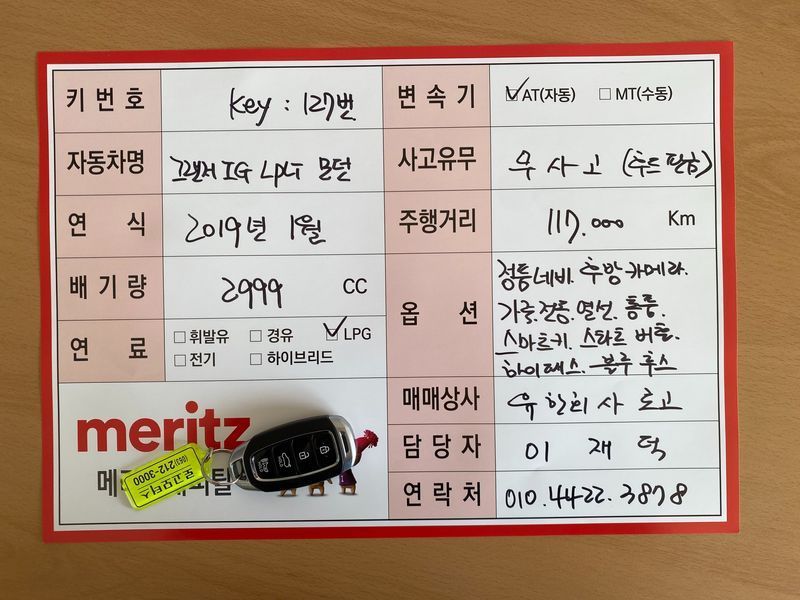 키번호 key : 127번
자동차명 그랜저 IG LPG 모던
연 식 2019년 1월
배기량 2999 CC
연 료 □ 휘발유 □ 경유 ☑ LPG
□ 전기 □ 하이브리드
변속기 ☑ AT(자동) □ MT(수동)
사고유무 무사고 (후드 판금)
주행거리 117.000 Km
옵 션 정품네비. 후방카메라.
가죽.전동.열선.통풍.
스마트키. 스타트 버튼.
하이패스. 블루투스
매매상사 유한회사 로고
담당자 이 재 덕
연락처 010.4422.3878
meritz
메
탈
로고모터스
(063)212-3000